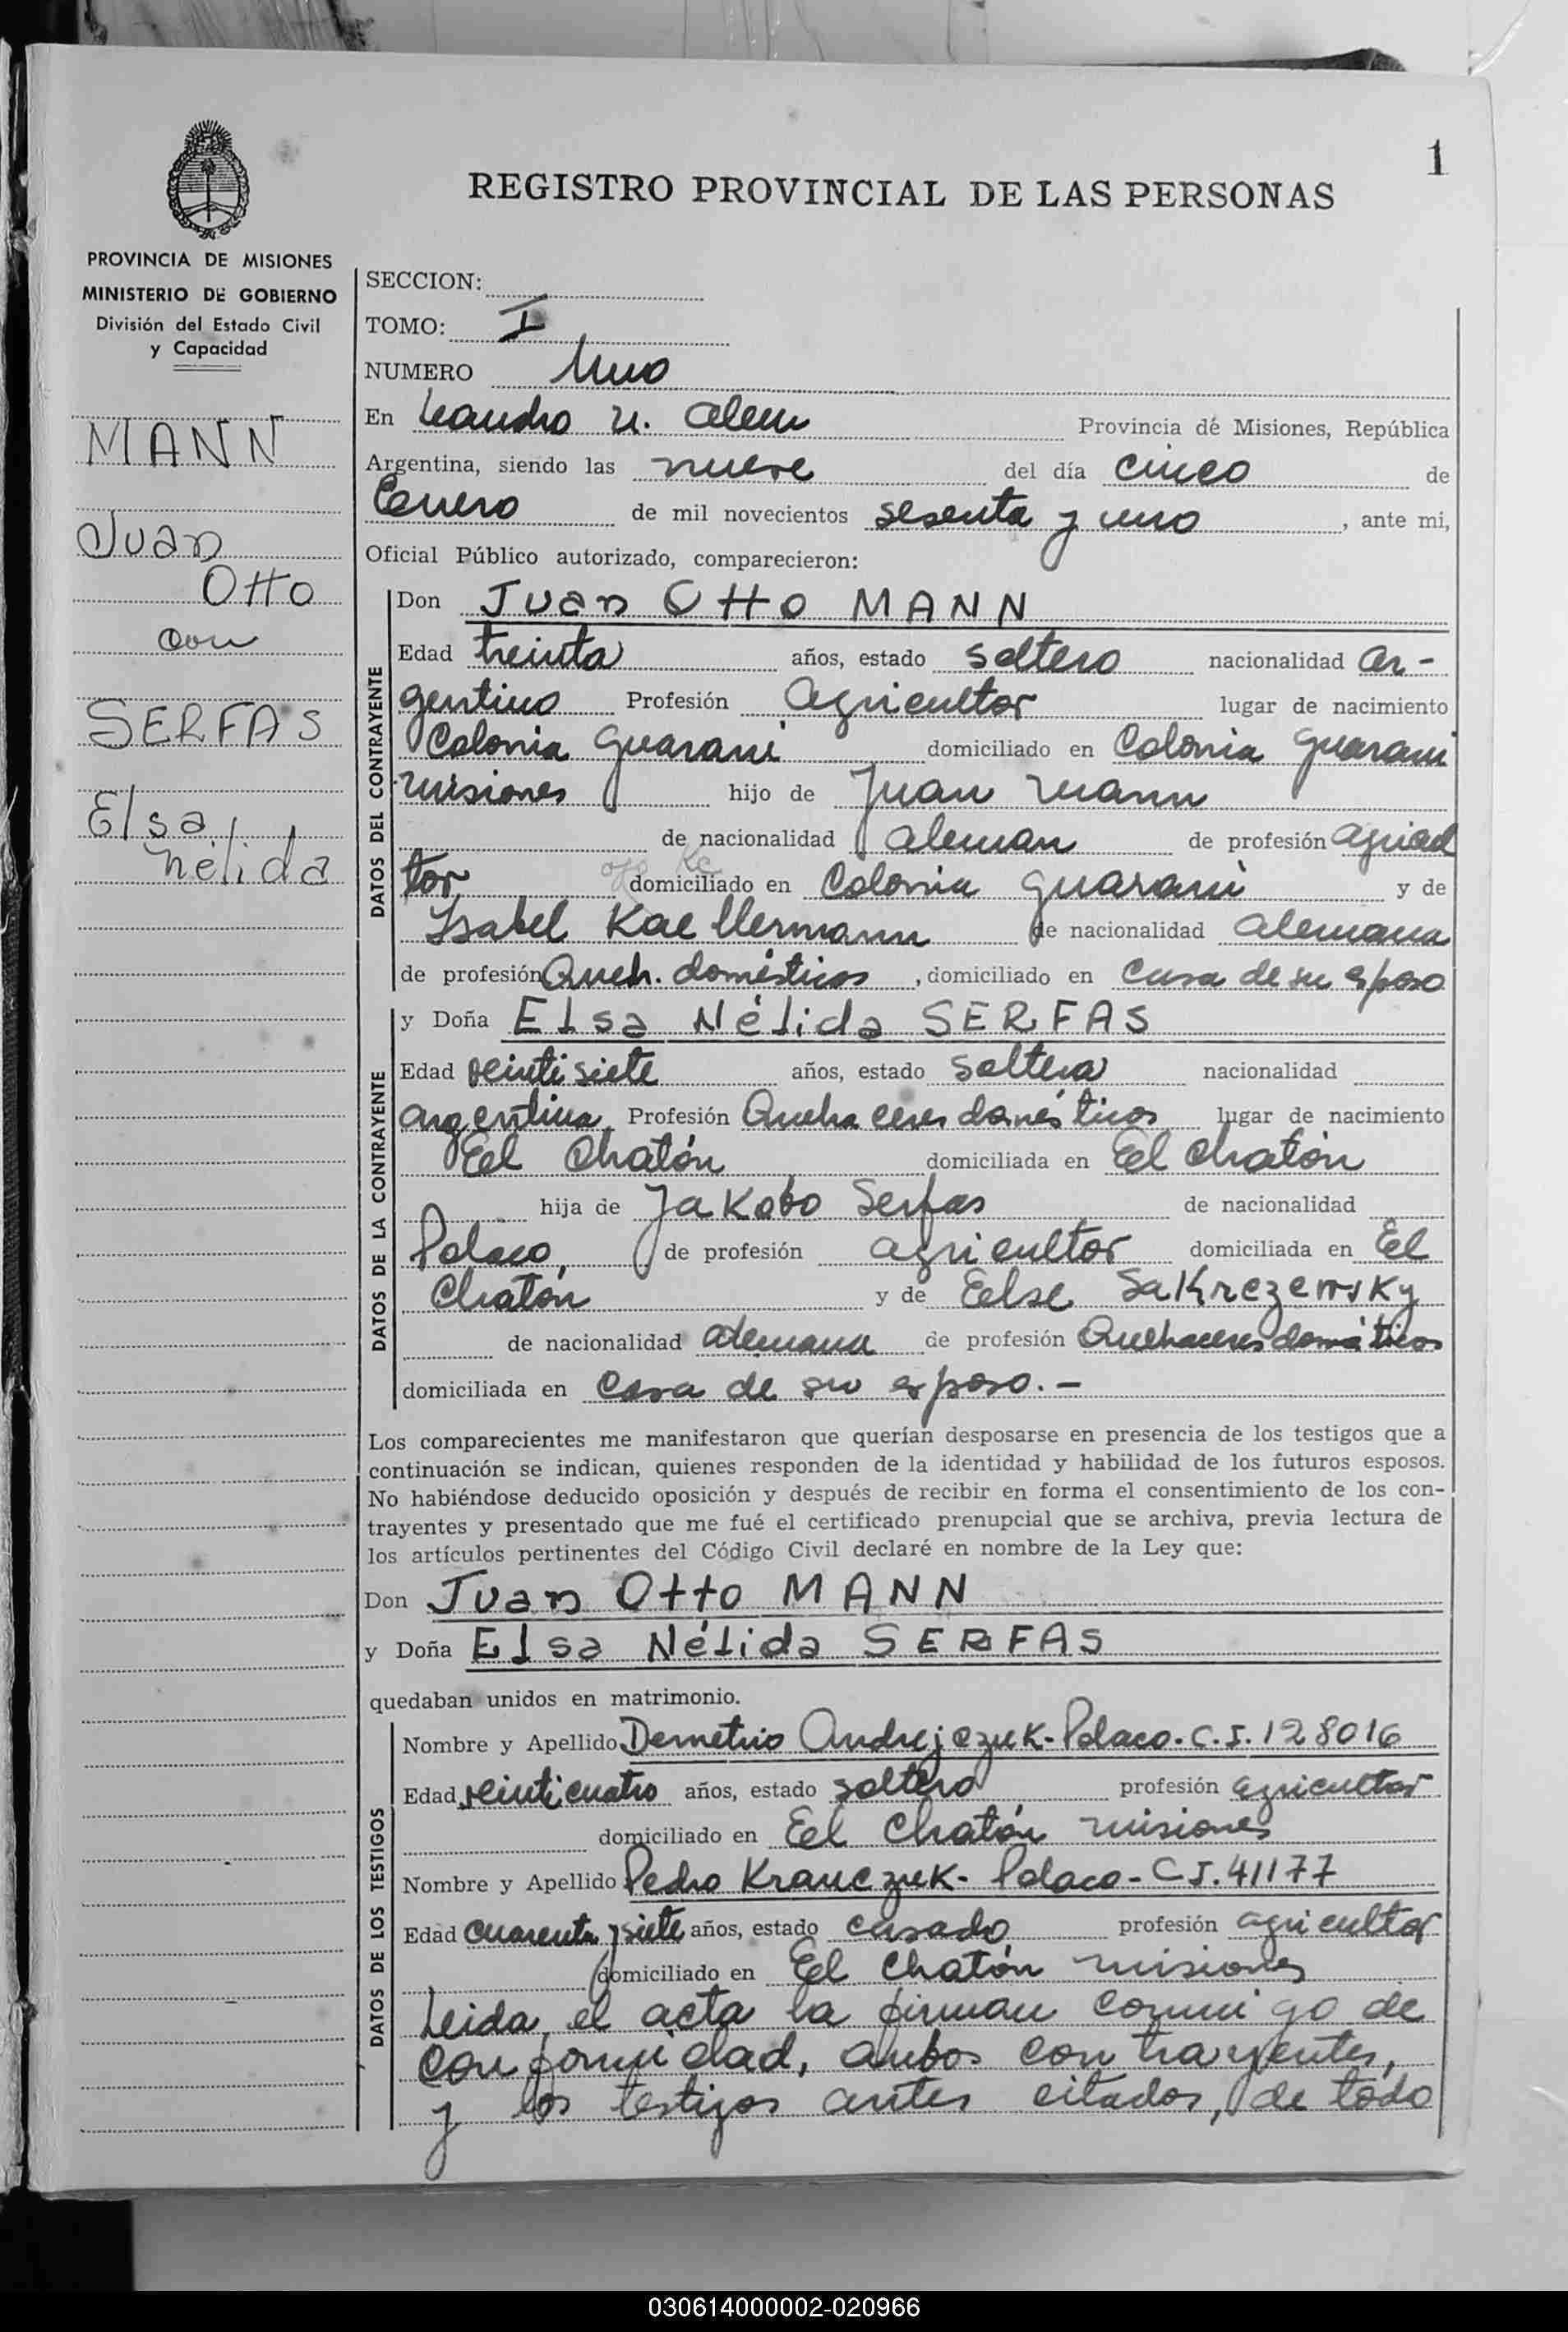 1
REGISTRO PROVINCIAL DE LAS PERSONAS
PROVINCIA DE MISIONES
MINISTERIO DE GOBIERNO
División del Estado Civil
y Capacidad
MANN
Juan
Otto
con
SERFAS
Elsa
Nélida
SECCION:
TOMO: I
NUMERO Uno
En Leandro N. Alem Provincia dé Misiones, República
Argentina, siendo las nueve del día cinco de
Enero de mil novecientos sesenta y uno, ante mi,
Oficial Público autorizado, comparecieron:
DATOS DEL CONTRAYENTE
Don Juan Otto MANN
Edad treinta años, estado soltero nacionalidad ar-
gentino Profesión Agricultor lugar de nacimiento
Colonia Guaraní domiciliado en Colonia Guaraní
Misiones hijo de Juan Mann
de nacionalidad aleman de profesión agricul
tor domiciliado en Colonia Guaraní y de
Isabel Kaellermann de nacionalidad alemana
de profesión Queh. domésticos, domiciliado en casa de su esposo
DATOS DE LA CONTRAYENTE
y Doña Elsa Nélida SERFAS
Edad veintisiete años, estado soltera nacionalidad
argentina Profesión Quehaceres domésticos lugar de nacimiento
El Chatón domiciliada en El Chatón
hija de Jakobo Serfas de nacionalidad
Polaco, de profesión agricultor domiciliada en El
Chatón y de Else Sakrezewsky
de nacionalidad alemana de profesión Quehaceres domésticos
domiciliada en casa de su esposo.-
Los comparecientes me manifestaron que querían desposarse en presencia de los testigos que a
continuación se indican, quienes responden de la identidad y habilidad de los futuros esposos.
No habiéndose deducido oposición y después de recibir en forma el consentimiento de los con-
trayentes y presentado que me fué el certificado prenupcial que se archiva, previa lectura de
los artículos pertinentes del Código Civil declaré en nombre de la Ley que:
Don Juan Otto MANN
y Doña Elsa Nélida SERFAS
quedaban unidos en matrimonio.
DATOS DE LOS TESTIGOS
Nombre y Apellido Demetrio Andrejczuk-Polaco.C.I.128016
Edad veinticuatro años, estado soltero profesión agricultor
domiciliado en El Chatón Misiones
Nombre y Apellido Pedro Krauczuk- Polaco-C I.41177
Edad cuarenta y siete años, estado casado profesión agricultor
domiciliado en El Chatón Misiones
Leida, el acta la firman conmigo de
conformidad, ambos contrayentes,
y los testigos antes citados, de todo
030614000002-020966